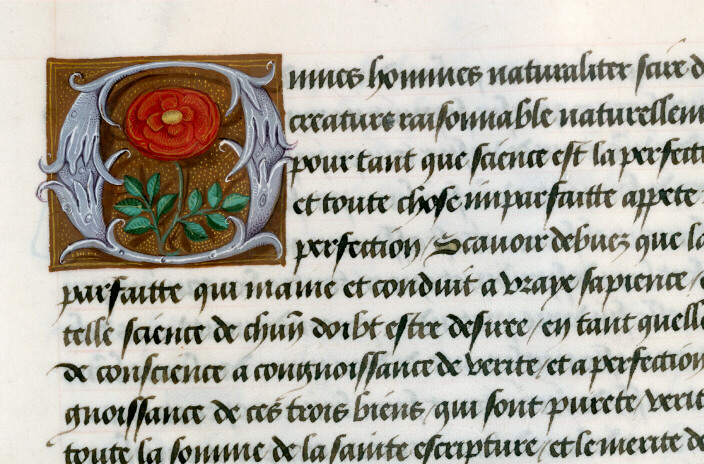 Omnes hommes naturaliter scire d
creature raisonnable naturellem
pour tant que science est la perfecti
et toute chose imparfaitte appete
perfection / Scavoir debuez que la
parfaitte qui maine et conduit a vraye sapience /
telle science de chun doibt estre desiree / en tant quelle
de conscience a congnoissance de verite / et a perfection
gnoissance de ces trois biens / qui sont purete / verit
toute la somme de la sainte escripture / et le merite de